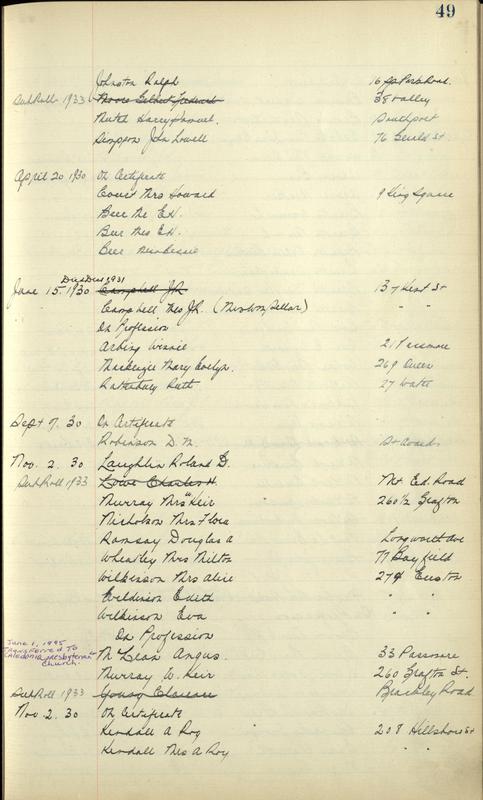 49
Johnston Ralph 16 Park Road.
Ret Roll 1933 Moore Gilbert Frederick 38 Valley
Ruth Harry Samuel. Southport
Simpson John Lowell 76 Gerald St
April 20 1930 On Certificate
Mrs Howard 9 King Square
Beer Mr E.H.
Beer Mrs E.H.
Beer Miss Bessie
Died Dec 1931
June 15. 1930 Campbell J.R. 137 Kent St
Campbell Mrs J.R. " "
On Profession
Arbing Winnie 21 Passmore
MacKenzie Mary Evelyn. 269 Queen
Rattenbury Ruth 27 Water
Sept 7. 30 On Certificate
Robinson D.M.
Nov. 2. 30 Laughlin Roland G.
Ret Roll 1933 Lowe Charles H. Mt Ed. Road
Murray Mrs Keir 260½ Grafton
Nicholson Mrs Flora
Ramsay Douglas A Longworth Ave
Wheatley Mrs Milton 77 Bayfield
Wilkinson Mrs Alice 274 Euston
Wilkinson Edith " "
Wilkinson Eva " "
On Profession
June 1, 1995
Transferred to
Caledonia Presbyterian
Church.
McLean Angus. 33 Passmore
Murray W. Keir 260 Grafton St.
Ret Roll 1933 Young Clarence Brackley Road
Nov. 2. 30 On Certificate
Kendall A Roy 208 Hillsboro St
Kendall Mrs A Roy " "